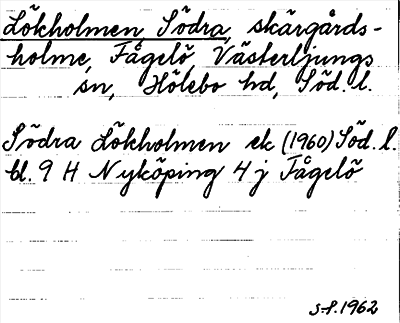 Lökholmen, Södra, skärgårds-
holme, Fågelö Västerljungs
sn, Hölebo hd, Söd. l.
Södra Lökholmen ek (1960) Söd. l.
bl. 9 H Nyköping 4 j Fågelö
1962